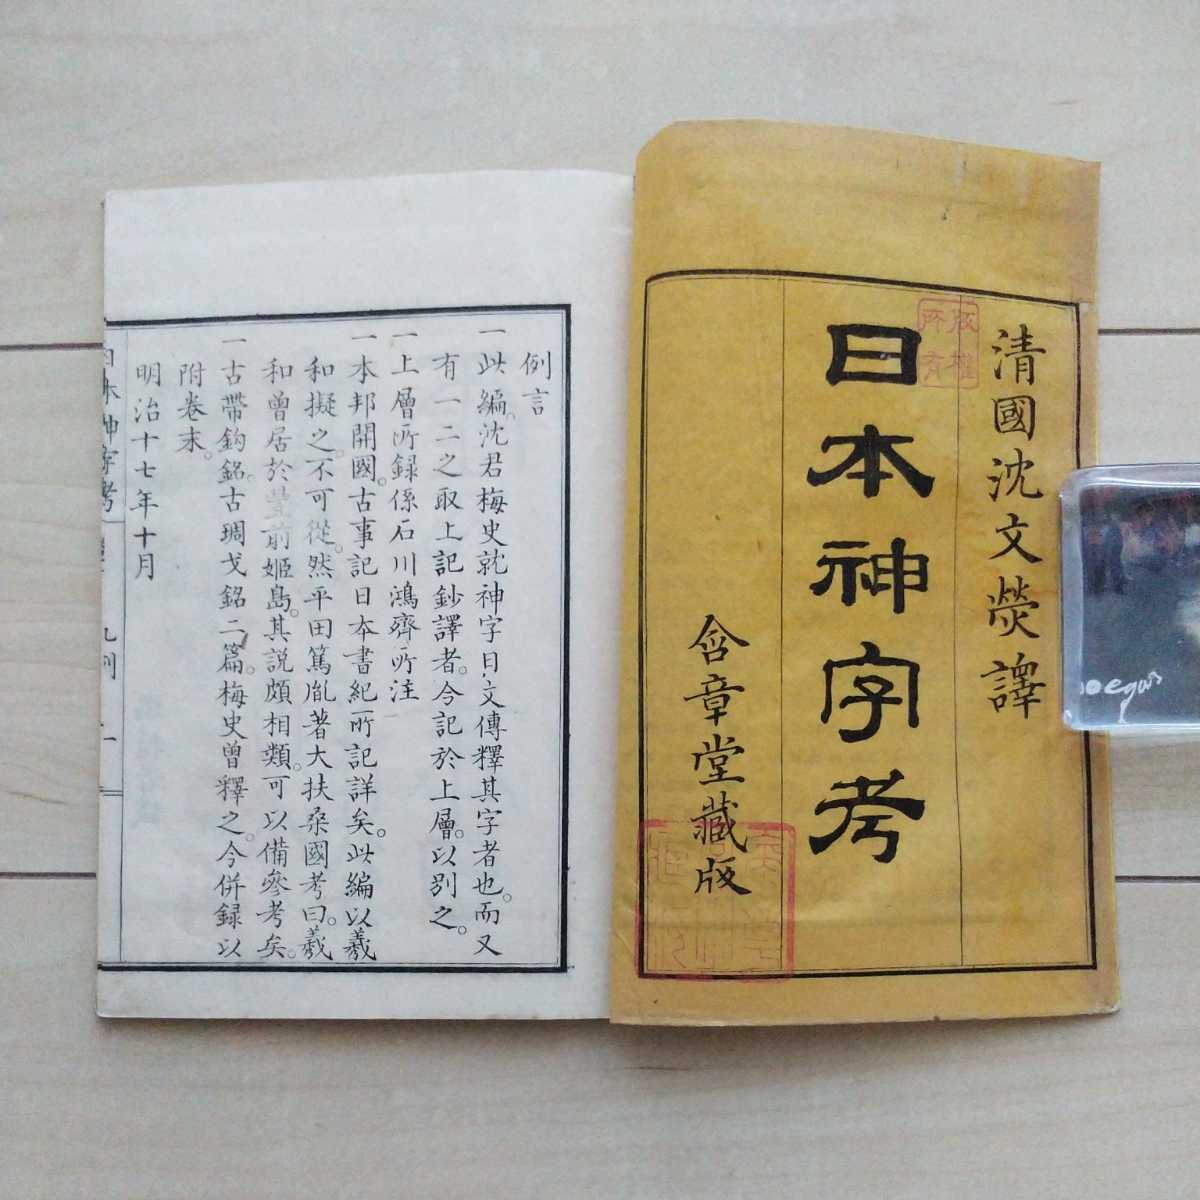 清國沈文熒譯
日本神字考
含章堂藏版
版權
所有
例言
一此編沈君梅史就神字日文傳釋其字者也。而又
有一二之取上記鈔譯者。今記於上層。以别之。
一上層所録係石川鴻齋所注
一本邦開國。古事記日本書紀所記詳矣。此編以羲
和擬之。不可從。然平田篤胤著大扶桑國考曰。羲
和曾居於豐前姬島。其説頗相類。可以備參考矣。
一古帶鈎銘。古琱戈銘二篇。梅史曾釋之。今併録以
附卷末。
明治十七年十月
日本神字考